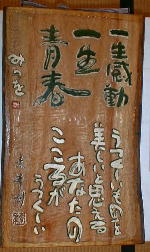 一生感動
一生
青春
みつを
うつくしいものを
美しいと思える
あなたの
こころが
うつくしい